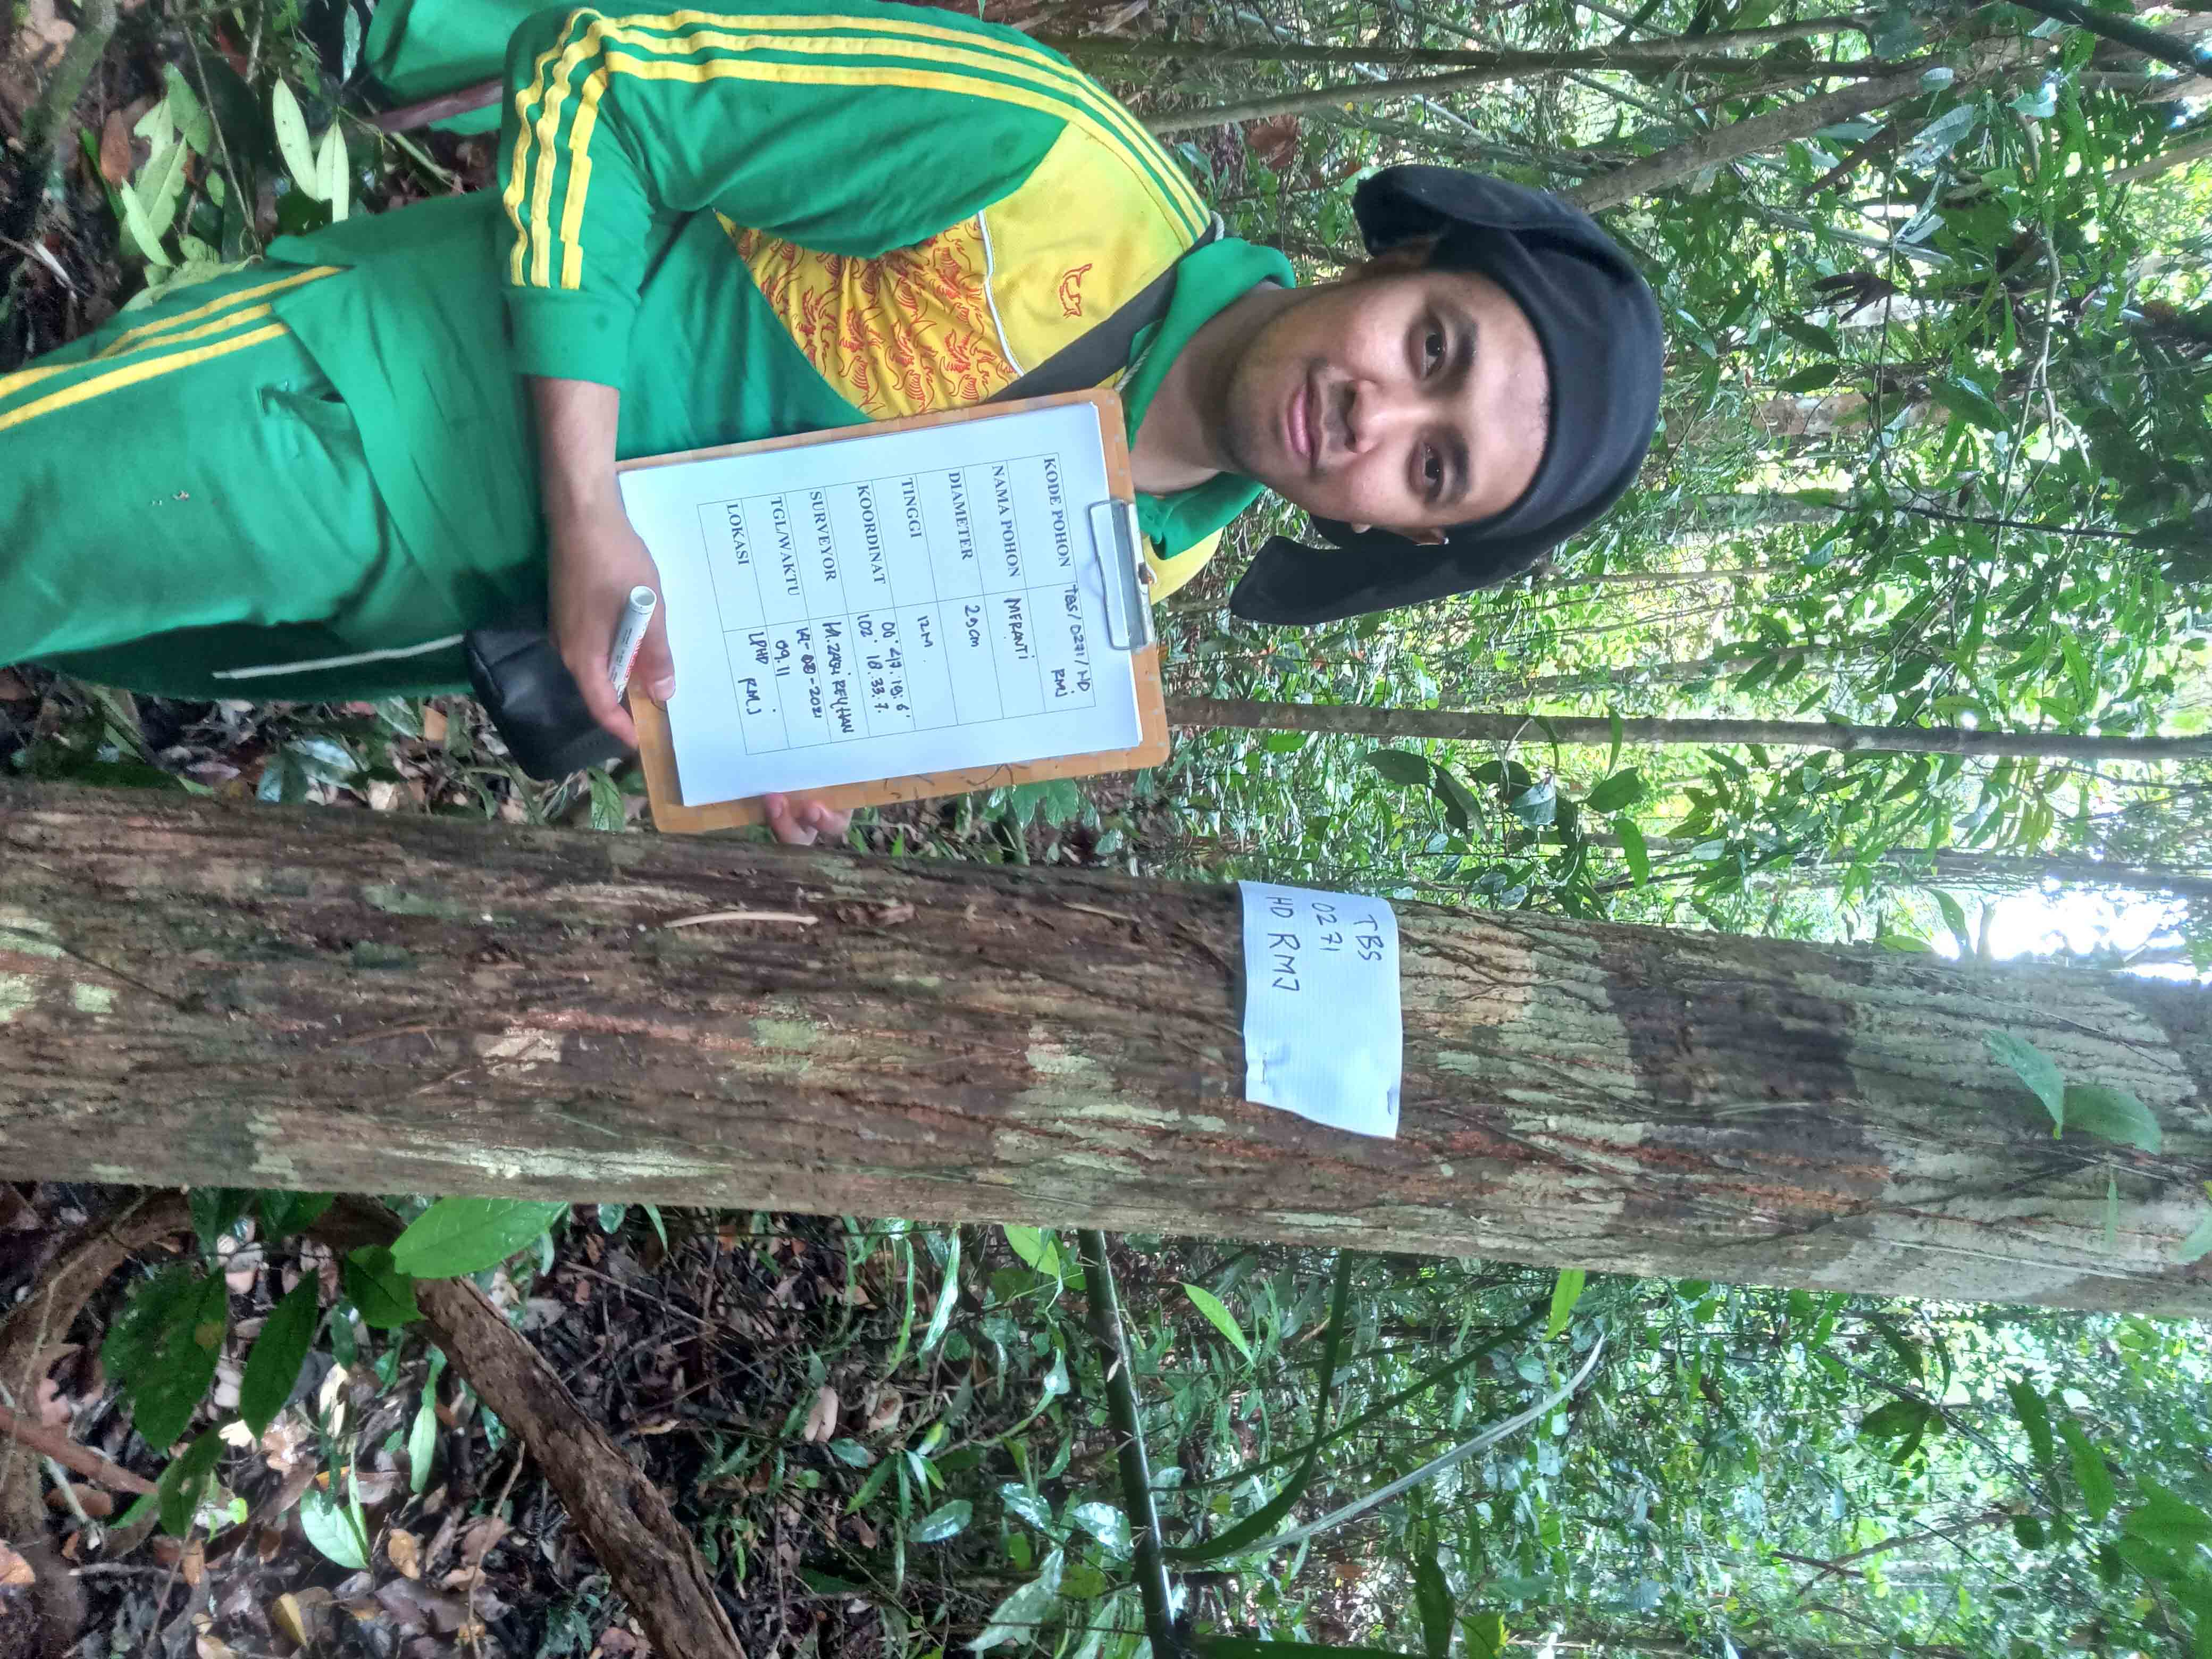 TBS
0271
HD RMJ
KODE POHON TBS/0271/HD
RMJ
NAMA POHON MERANTI
DIAMETER 29cm
TINGGI 12M
KOORDINAT 00° 47. 19. 6'
102° 18. 33. 7.
SURVEYOR M. ZAQI REYHAN
TGL/WAKTU 14- -2021
09.11
LOKASI LPHD
RMJ